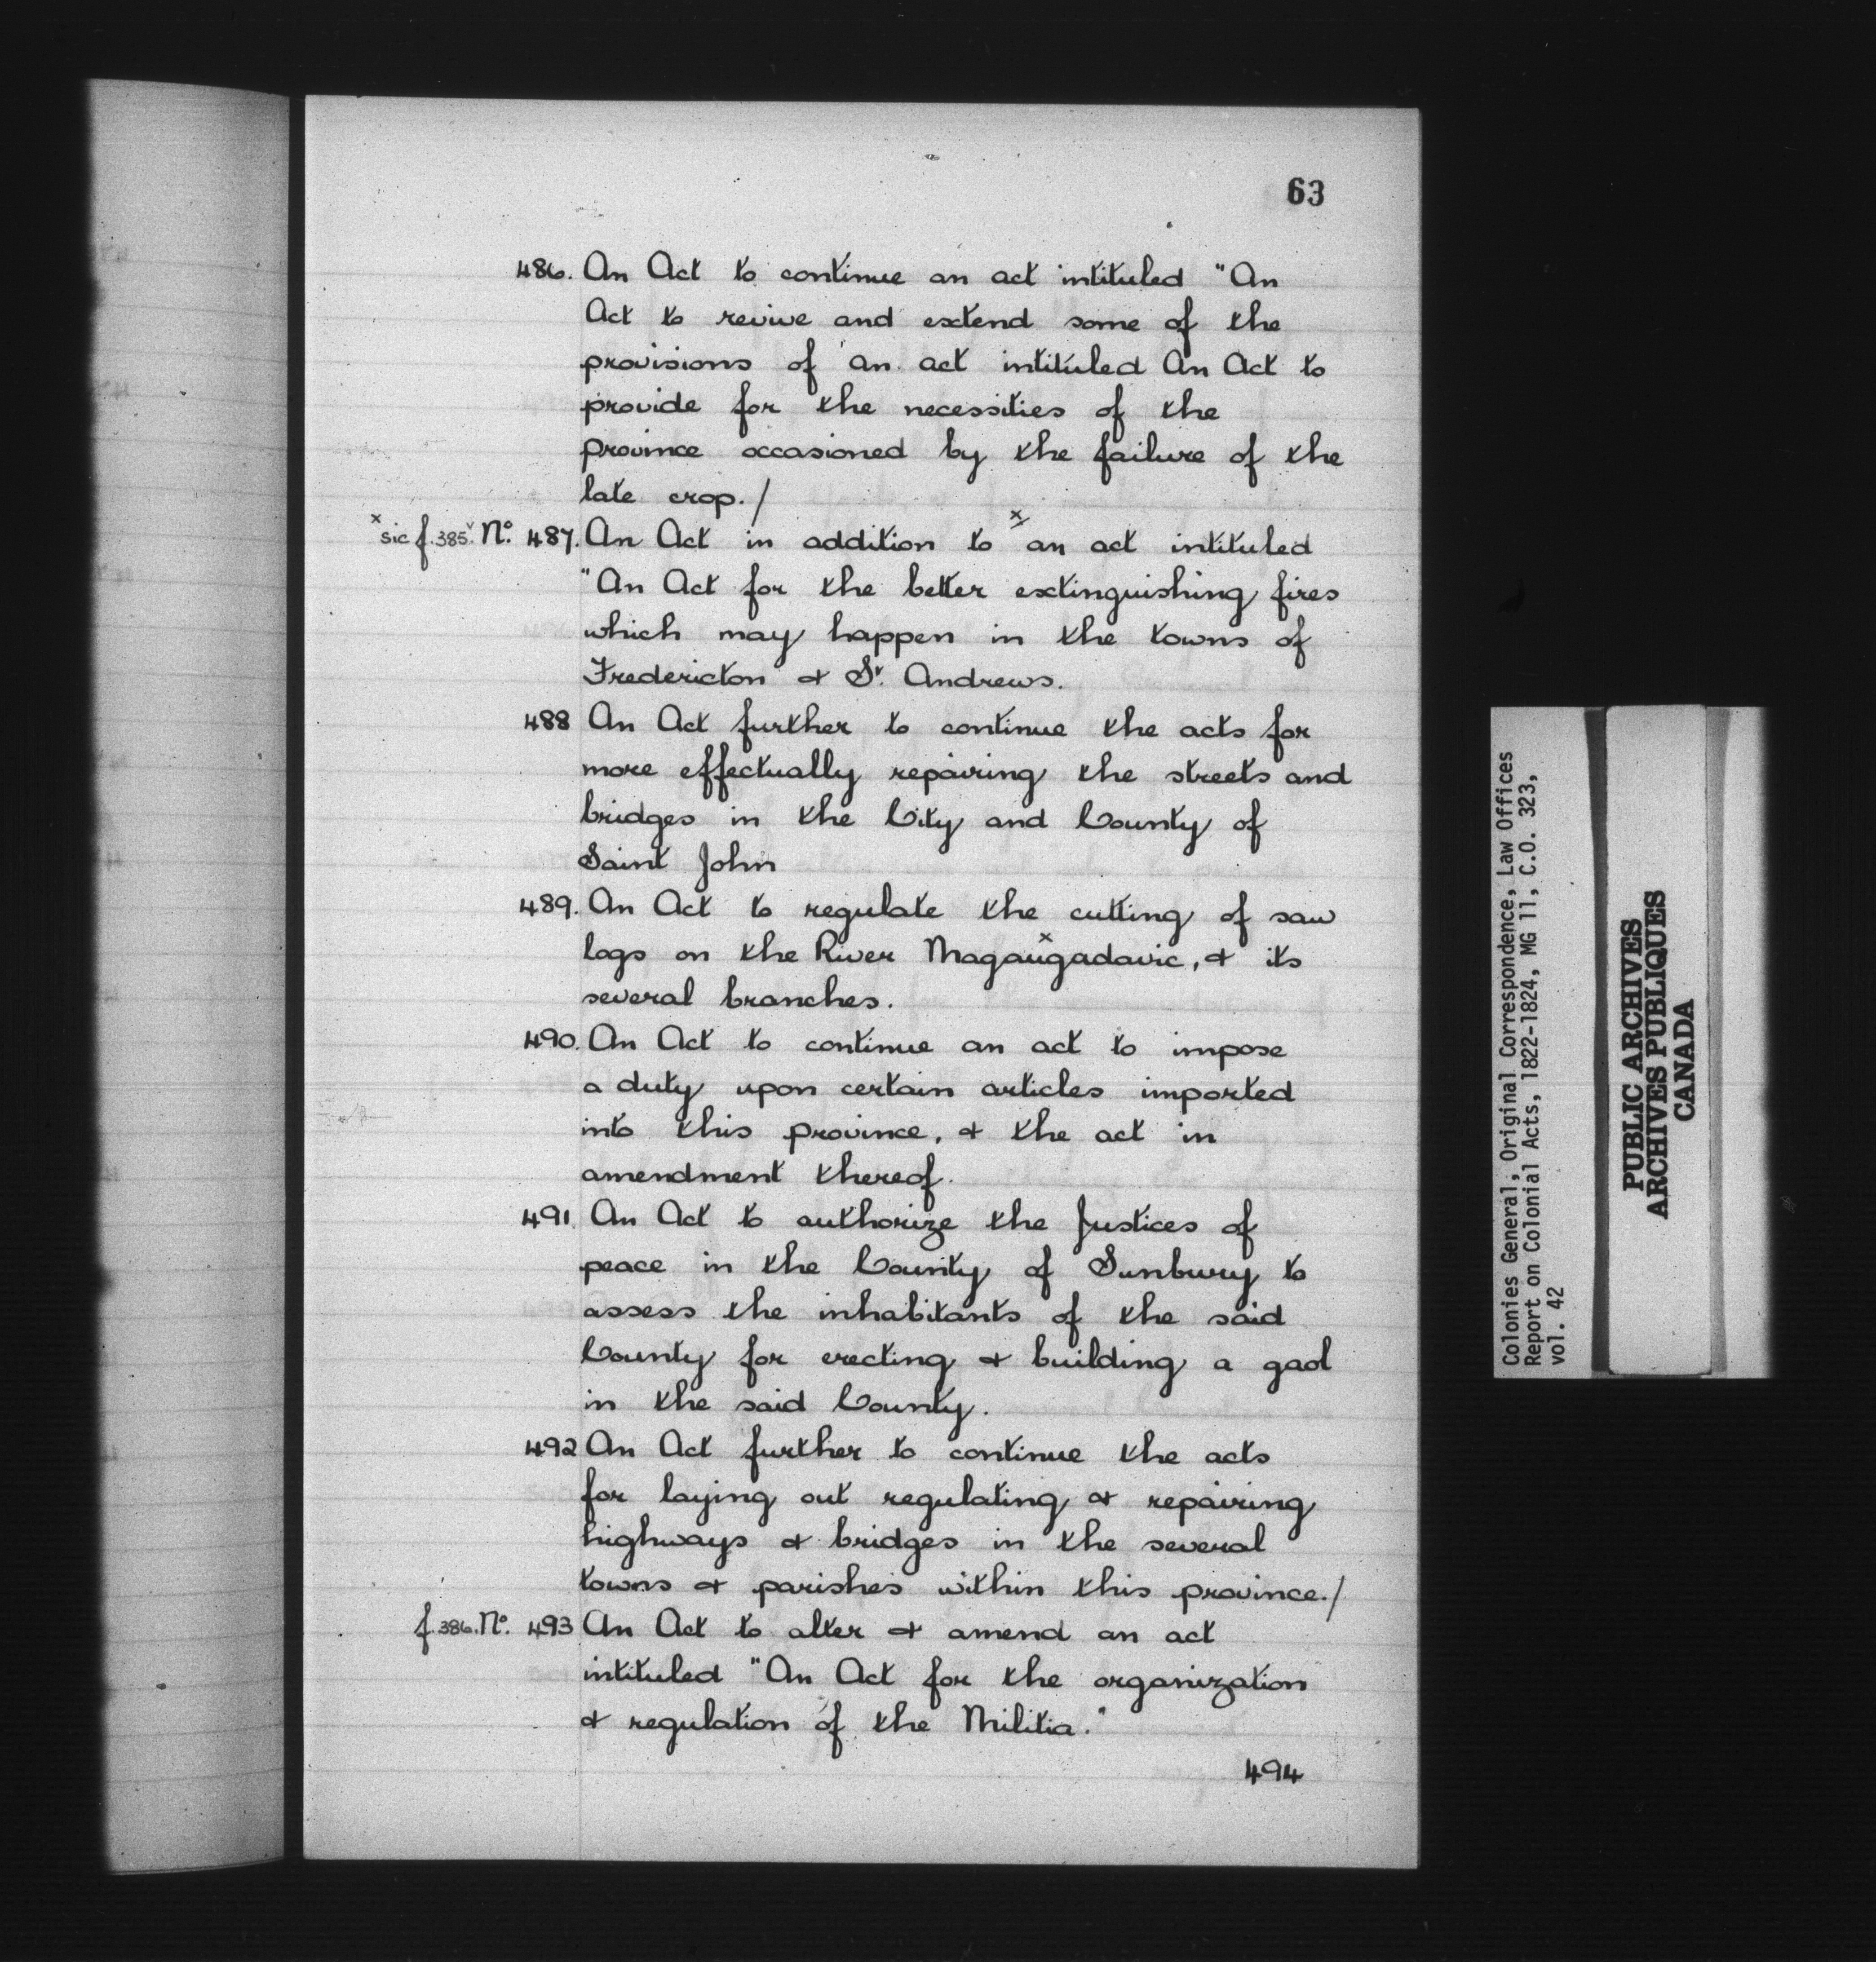 63
486. An Act to continue an act intituled "An
Act to revive and extend some of the
provisions of an act intituled An Act to
provide for the necessities of the
province occasioned by the failure of the
late crop./
x sic f.385v. No. 487. An Act in addition to x an act intituled
"An Act for the better extinguishing fires
which may happen in the towns of
Fredericton & St. Andrews.
488 An Act further to continue the acts for
more effectually repairing the streets and
bridges in the City and County of
Saint John
489. An Act to regulate the cutting of saw
logs on the River Magaugadavic, & its
several branches.
490. An Act to continue an act to impose
a duty upon certain articles imported
into this province, & the act in
amendment thereof.
491. An Act to authorize the Justices of
peace in the County of Sunbury to
assess the inhabitants of the said
County for erecting & building a gaol
in the said County.
492 An Act further to continue the acts
for laying out regulating & repairing
highways & bridges in the several
towns & parishes within this province./
f.386. No. 493 An Act to alter & amend an act
intituled "An Act for the organization
& regulation of the Militia."
494
Colonies General, Original Correspondence, Law Offices
Report on Colonial Acts, 1822-1824, MG 11, C.O. 323,
vol. 42
PUBLIC ARCHIVES
ARCHIVES PUBLIQUES
CANADA